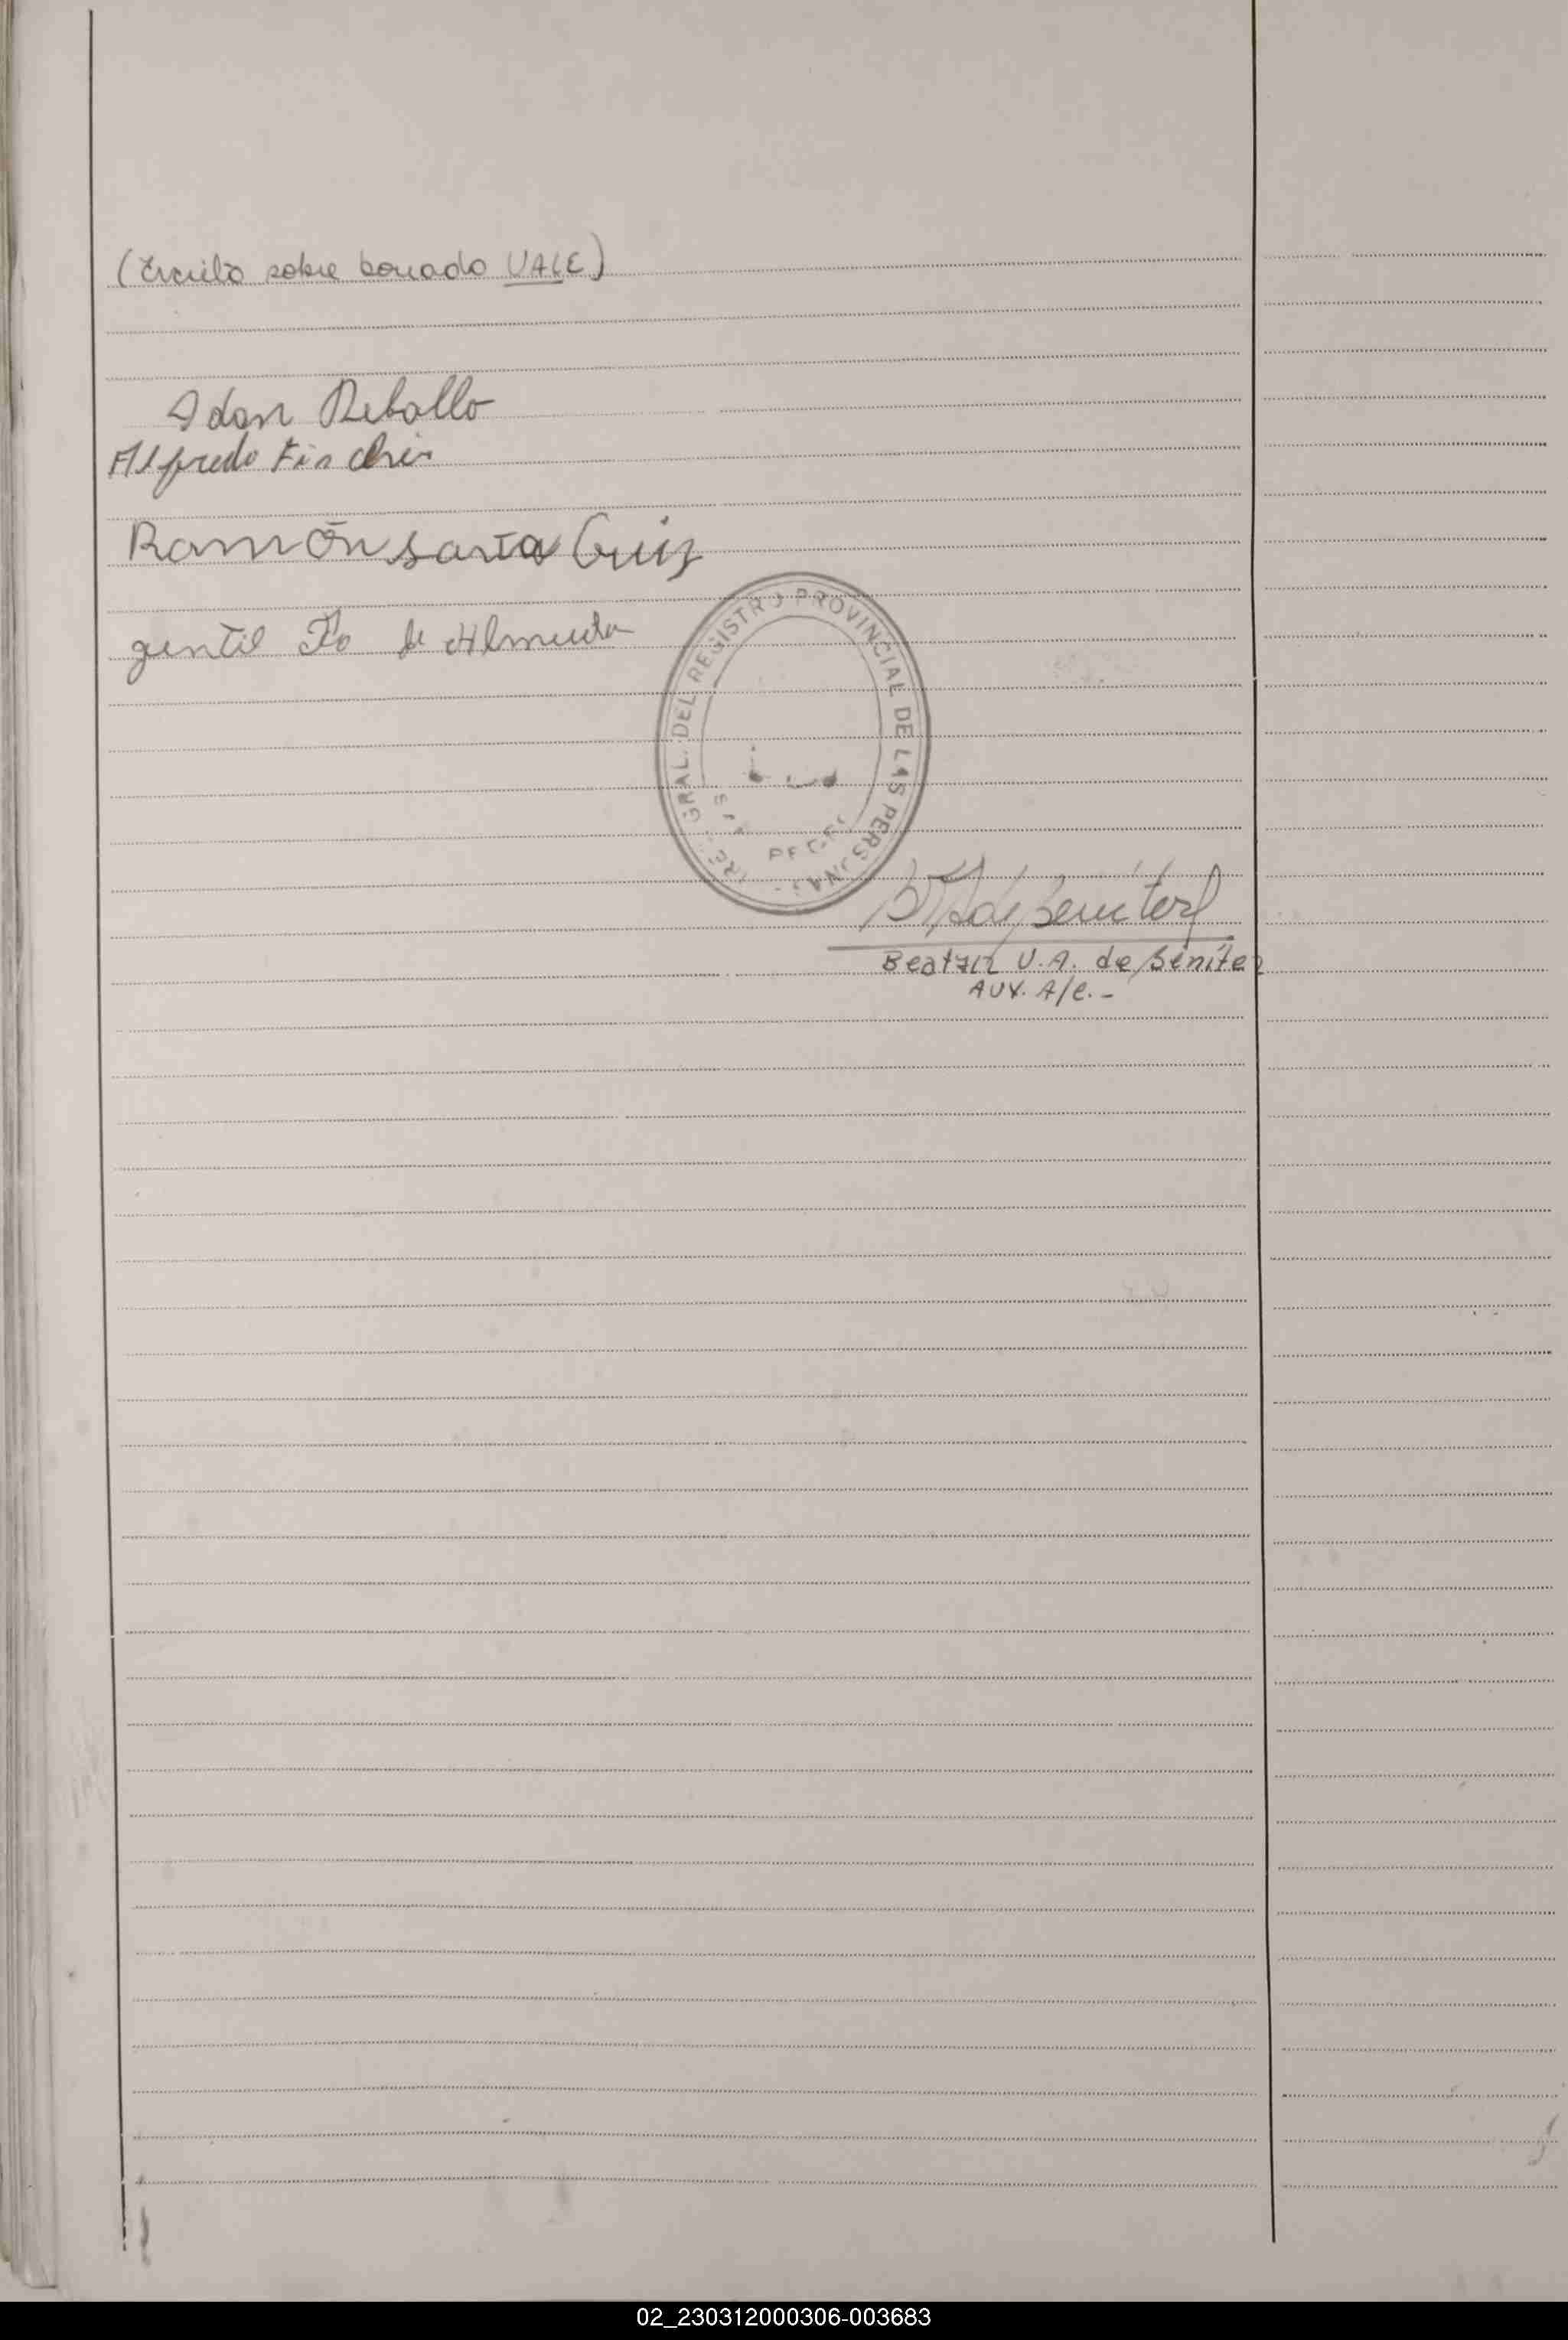 (Escrito sobre borrado VALE)
Idan Rebollo
Alfredo Fischer
Ramón Santa Cruz
gentil Fo de Almeida
GRAL. DEL REGISTRO PROVINCIAL DE LAS PERSONAS
Beatriz V.A. de Benítez
AUX. A/C.-
02_230312000306-003683